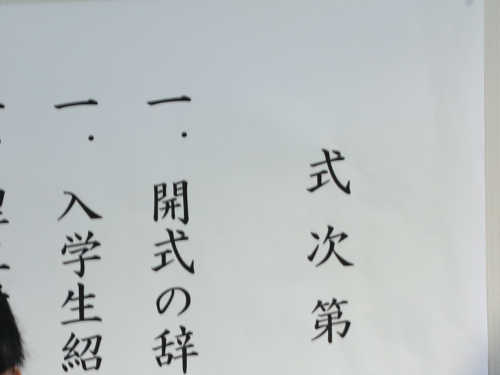 式次第
一.開式の辞
一.入学生紹